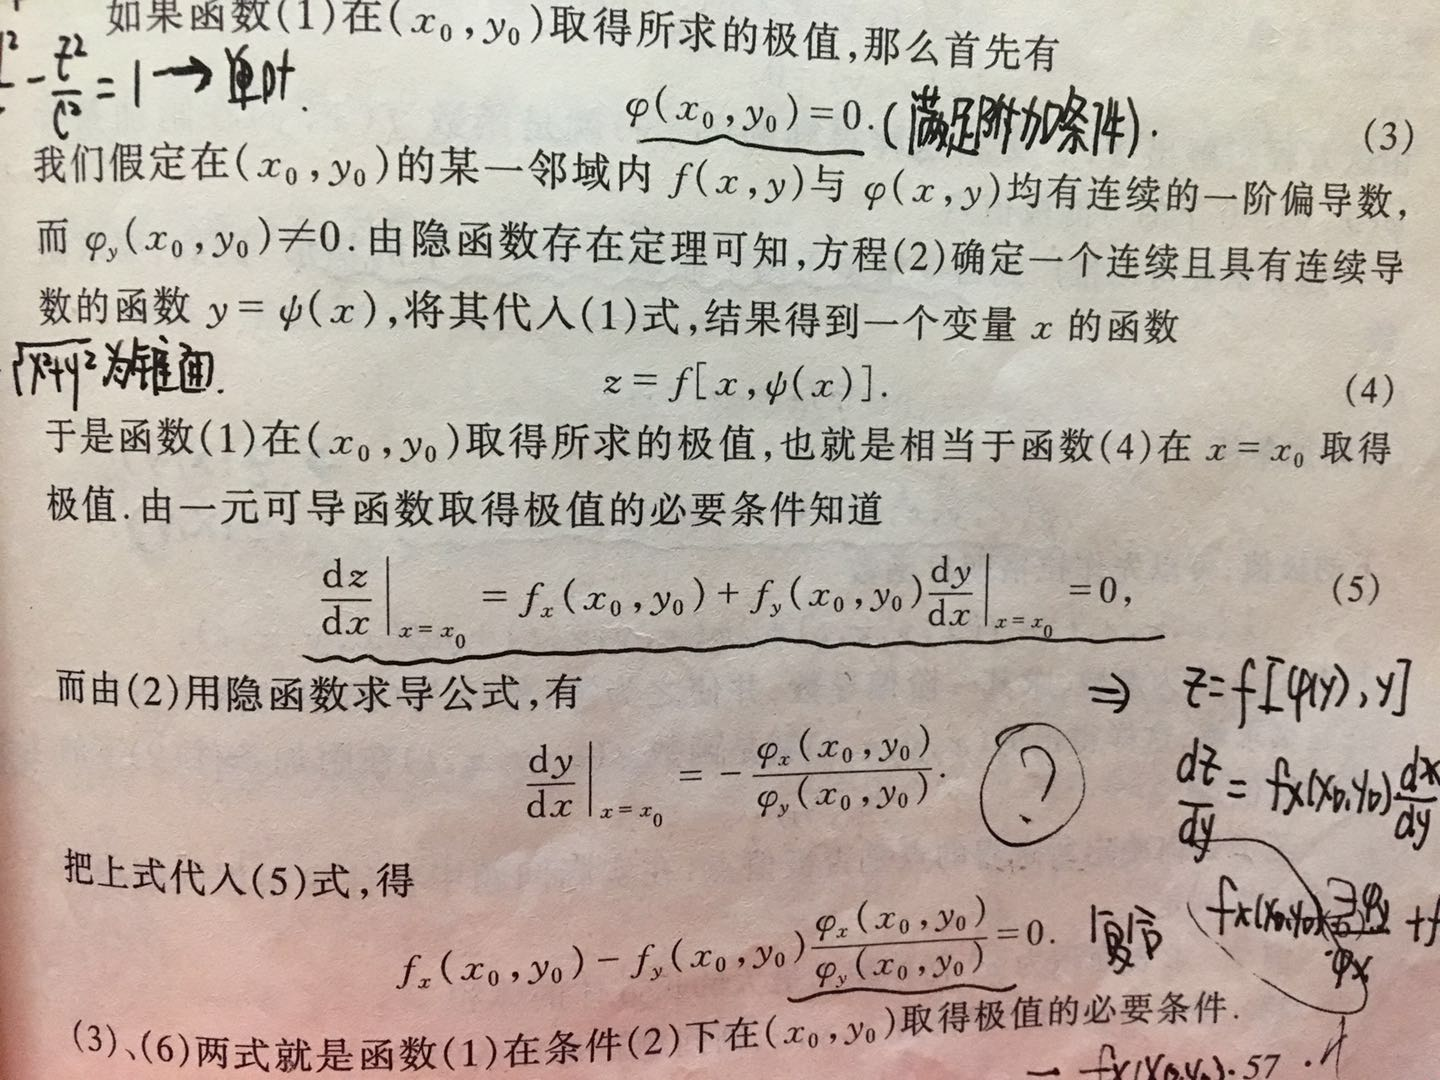 如果函数(1)在(x₀,y₀)取得所求的极值,那么首先有
- z²/c² = 1 → 单叶.
φ(x₀,y₀)=0. (满足附加条件). (3)
我们假定在(x₀,y₀)的某一邻域内 f(x,y)与 φ(x,y)均有连续的一阶偏导数,
而 φ_y(x₀,y₀)≠0.由隐函数存在定理可知,方程(2)确定一个连续且具有连续导
数的函数 y=ψ(x),将其代入(1)式,结果得到一个变量 x 的函数
√x²+y² 为锥面.
z=f[x,ψ(x)]. (4)
于是函数(1)在(x₀,y₀)取得所求的极值,也就是相当于函数(4)在 x=x₀ 取得
极值.由一元可导函数取得极值的必要条件知道
dz/dx|_{x=x₀} = f_x(x₀,y₀)+f_y(x₀,y₀) dy/dx|_{x=x₀} =0, (5)
而由(2)用隐函数求导公式,有
⇒ z=f[φ(y),y]
dy/dx|_{x=x₀} = - φ_x(x₀,y₀)/φ_y(x₀,y₀). ?
dz/dy = fx(x₀,y₀) dx/dy
把上式代入(5)式,得
fx(x₀,y₀) φy/φx + f
f_x(x₀,y₀)-f_y(x₀,y₀) φ_x(x₀,y₀)/φ_y(x₀,y₀) =0. 复合
(3)、(6)两式就是函数(1)在条件(2)下在(x₀,y₀)取得极值的必要条件.
- fx(x₀,y₀)· 57 ·